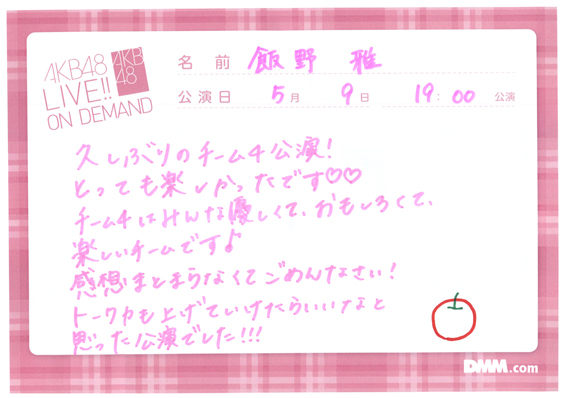 AKB48
LIVE!!
ON DEMAND
AKB
48
名前 飯野 雅
公演日 5月 9日 19:00 公演
久しぶりのチーム4公演!
とっても楽しかったです♡♡
チーム4はみんな優しくて、おもしろくて、
楽しいチームです♪
感想まとまらなくてごめんなさい!
トーク力も上げていけたらいいなと
思った公演でした!!!
DMM.com